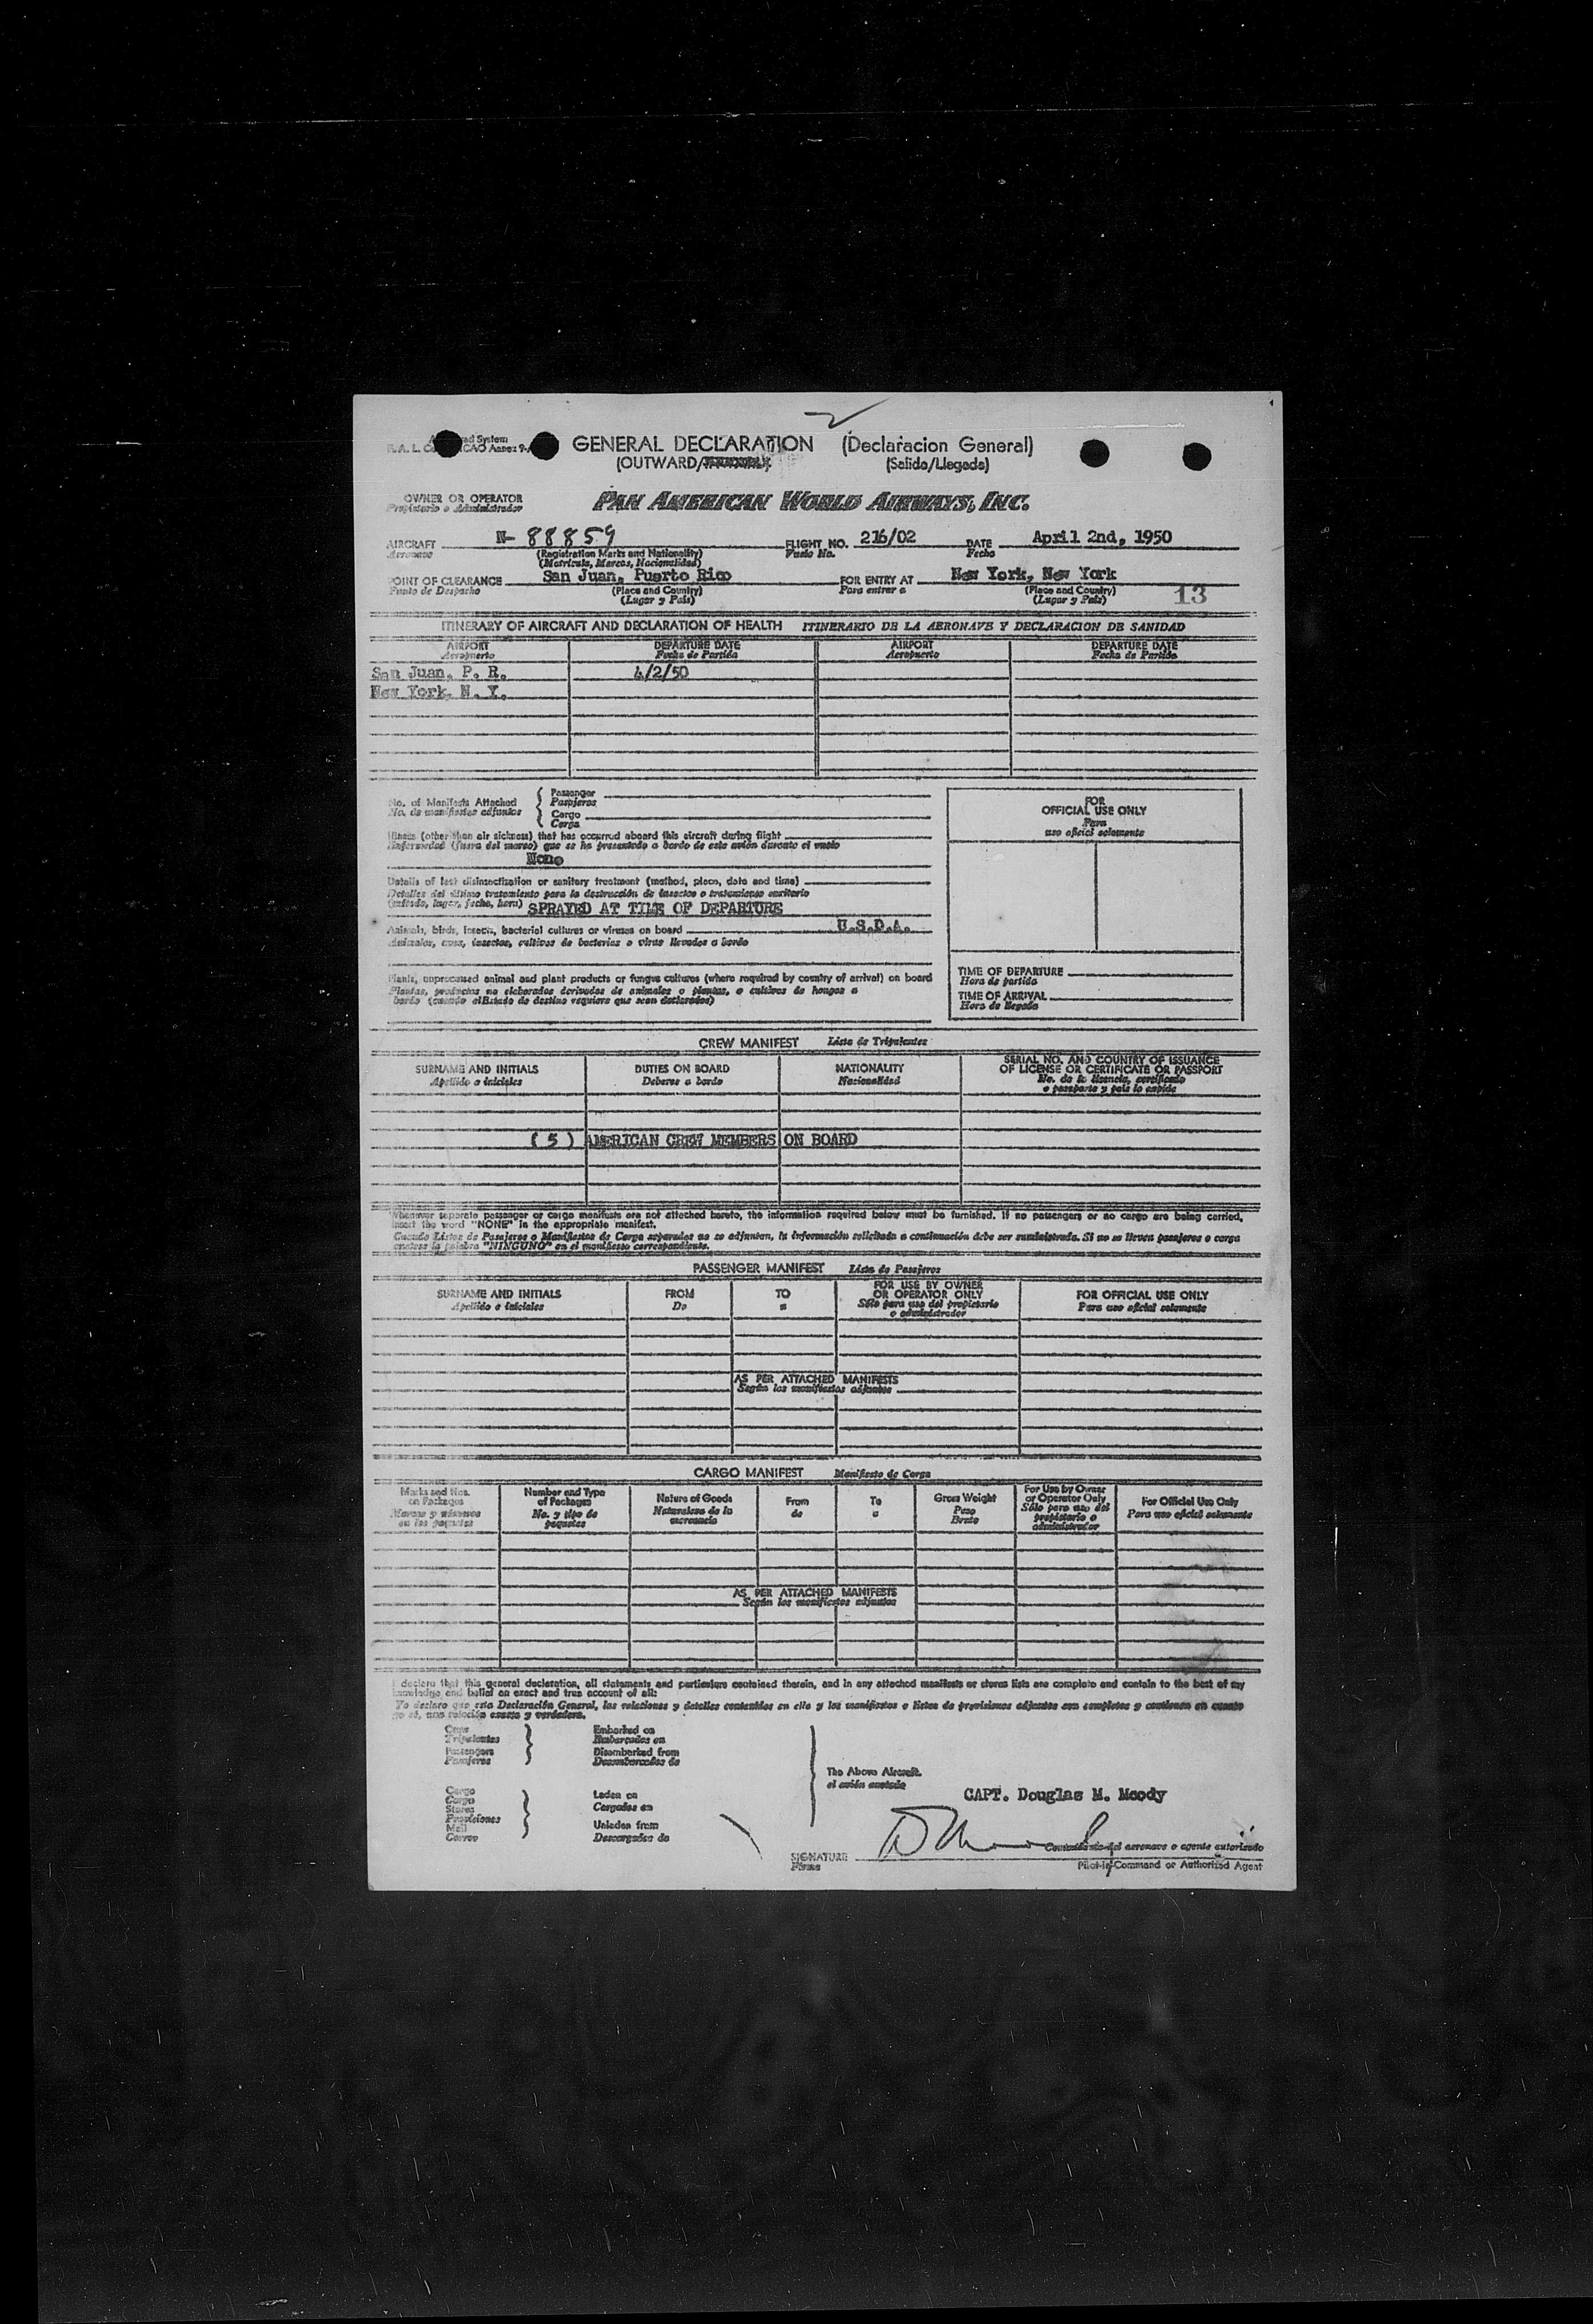 GENERAL DECLARATION (Declaracion General)
(OUTWARD/
(Salida/Llegada)
OWNER OR OPERATOR
Propietario o Administrador
PAN AMERICAN WORLD AIRWAYS, INC.
AIRCRAFT N- 88859 FLIGHT NO. 216/02 DATE April 2nd, 1950
Aeronave (Registration Marks and Nationality) Vuelo No. Fecha
(Matricula, Marcas, Nacionalidad)
POINT OF CLEARANCE San Juan, Puerto Rico FOR ENTRY AT New York, New York
Punto de Despacho (Place and Country) Para entrar a (Place and Country) 13
(Lugar y País) (Lugar y País)
ITINERARY OF AIRCRAFT AND DECLARATION OF HEALTH ITINERARIO DE LA AERONAVE Y DECLARACION DE SANIDAD
AIRPORT DEPARTURE DATE AIRPORT DEPARTURE DATE
Aeropuerto Fecha de Partida Aeropuerto Fecha de Partida
San Juan, P. R. 4/2/50
New York, N. Y.
No. of Manifests Attached
No. de manifiestos adjuntos
Passenger
Pasajeros
Cargo
Carga
Illness (other than air sickness) that has occurred aboard this aircraft during flight
Enfermedad (fuera del mareo) que se ha presentado a bordo de este avión durante el vuelo
None
Details of last disinsectization or sanitary treatment (method, place, date and time)
Detalles del último tratamiento para la destrucción de insectos o tratamiento sanitario
(método, lugar, fecha, hora) SPRAYED AT TIME OF DEPARTURE
Animals, birds, insects, bacterial cultures or viruses on board U.S.D.A.
Animales, aves, insectos, cultivos de bacterias o virus llevados a bordo
Plants, unprocessed animal and plant products or fungus cultures (where required by country of arrival) on board
Plantas, productos no elaborados derivados de animales o plantas, o cultivos de hongos a
bordo (cuando el Estado de destino requiera que sean declarados)
FOR
OFFICIAL USE ONLY
Para
uso oficial solamente
TIME OF DEPARTURE
Hora de partida
TIME OF ARRIVAL
Hora de llegada
CREW MANIFEST Lista de Tripulantes
SURNAME AND INITIALS DUTIES ON BOARD NATIONALITY SERIAL NO. AND COUNTRY OF ISSUANCE
OF LICENSE OR CERTIFICATE OR PASSPORT
Apellido e iniciales Deberes a bordo Nacionalidad No. de la licencia, certificado
o pasaporte y país lo expide
( 5 ) AMERICAN CREW MEMBERS ON BOARD
Whenever separate passenger or cargo manifests are not attached hereto, the information required below must be furnished. If no passengers or no cargo are being carried,
insert the word "NONE" in the appropriate manifest.
Cuando Listas de Pasajeros o Manifiestos de Carga separados no se adjuntan, la información solicitada a continuación debe ser suministrada. Si no se llevan pasajeros o carga
anótese la palabra "NINGUNO" en el manifiesto correspondiente.
PASSENGER MANIFEST Lista de Pasajeros
SURNAME AND INITIALS FROM TO FOR USE BY OWNER
OR OPERATOR ONLY FOR OFFICIAL USE ONLY
Apellido e iniciales De a Sólo para uso del propietario
o administrador Para uso oficial solamente
AS PER ATTACHED MANIFESTS
Según los manifiestos adjuntos
CARGO MANIFEST Manifiesto de Carga
Marks and Nos.
on Packages
Marcas y números
en los paquetes
Number and Type
of Packages
No. y tipo de
paquetes
Nature of Goods
Naturaleza de la
mercancía
From
de
To
a
Gross Weight
Peso
Bruto
For Use by Owner
or Operator Only
Sólo para uso del
propietario o
administrador
For Official Use Only
Para uso oficial solamente
AS PER ATTACHED MANIFESTS
Según los manifiestos adjuntos
I declare that this general declaration, all statements and particulars contained therein, and in any attached manifests or stores lists are complete and contain to the best of my
knowledge and belief an exact and true account of all:
Yo declaro que esta Declaración General, las relaciones y detalles contenidos en ella y los manifiestos o listas de provisiones adjuntas son completos y contienen en cuanto
yo sé, una relación exacta y verdadera.
Crew
Tripulantes
Passengers
Pasajeros
Embarked on
Embarcados en
Disembarked from
Desembarcados de
Cargo
Carga
Stores
Provisiones
Mail
Correo
Laden on
Cargados en
Unladen from
Descargados de
The Above Aircraft.
el avión anotado
CAPT. Douglas M. Moody
SIGNATURE
Firma
Comandante del aeronave o agente autorizado
Pilot-in-Command or Authorized Agent